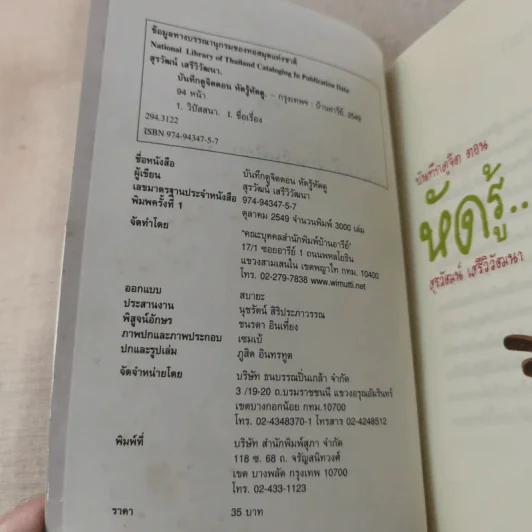 ข้อมูลทางบรรณานุกรมของหอสมุดแห่งชาติ
National Library of Thailand Cataloging In Publication Data
สุรวัฒน์ เสรีวิวัฒนา.
บันทึกดูจิตตอน หัดรู้หัดดู. – กรุงเทพฯ : บ้านอารีย์, 2549
94 หน้า
1. วิปัสสนา. I. ชื่อเรื่อง
294.3122
ISBN 974-94347-5-7
ชื่อหนังสือ บันทึกดูจิตตอน หัดรู้หัดดู
ผู้เขียน สุรวัฒน์ เสรีวิวัฒนา
เลขมาตรฐานประจำหนังสือ 974-94347-5-7
พิมพ์ครั้งที่ 1 ตุลาคม 2549 จำนวนพิมพ์ 3000 เล่ม
จัดทำโดย "คณะบุคคลสำนักพิมพ์บ้านอารีย์"
17/1 ซอยอารีย์ 1 ถนนพหลโยธิน
แขวงสามเสนใน เขตพญาไท กทม. 10400
โทร. 02-279-7838 www.wimutti.net
ออกแบบ สบายะ
ประสานงาน นุชรัตน์ สิริประภาวรรณ
พิสูจน์อักษร ชนรดา อินเที่ยง
ภาพปกและภาพประกอบ เซมเบ้
ปกและรูปเล่ม ภูสิต อินทรทูต
จัดจำหน่ายโดย บริษัท ธนบรรณปิ่นเกล้า จำกัด
3 /19-20 ถ.บรมราชชนนี แขวงอรุณอัมรินทร์
เขตบางกอกน้อย กทม.10700
โทร. 02-4348370-1 โทรสาร 02-4248512
พิมพ์ที่ บริษัท สำนักพิมพ์สุภา จำกัด
118 ซ. 68 ถ. จรัญสนิทวงศ์
เขต บางพลัด กรุงเทพ 10700
โทร. 02-433-1123
ราคา 35 บาท
บันทึกดูจิต ตอน
หัดรู้..
สุรวัฒน์ เสรีวิวัฒนา